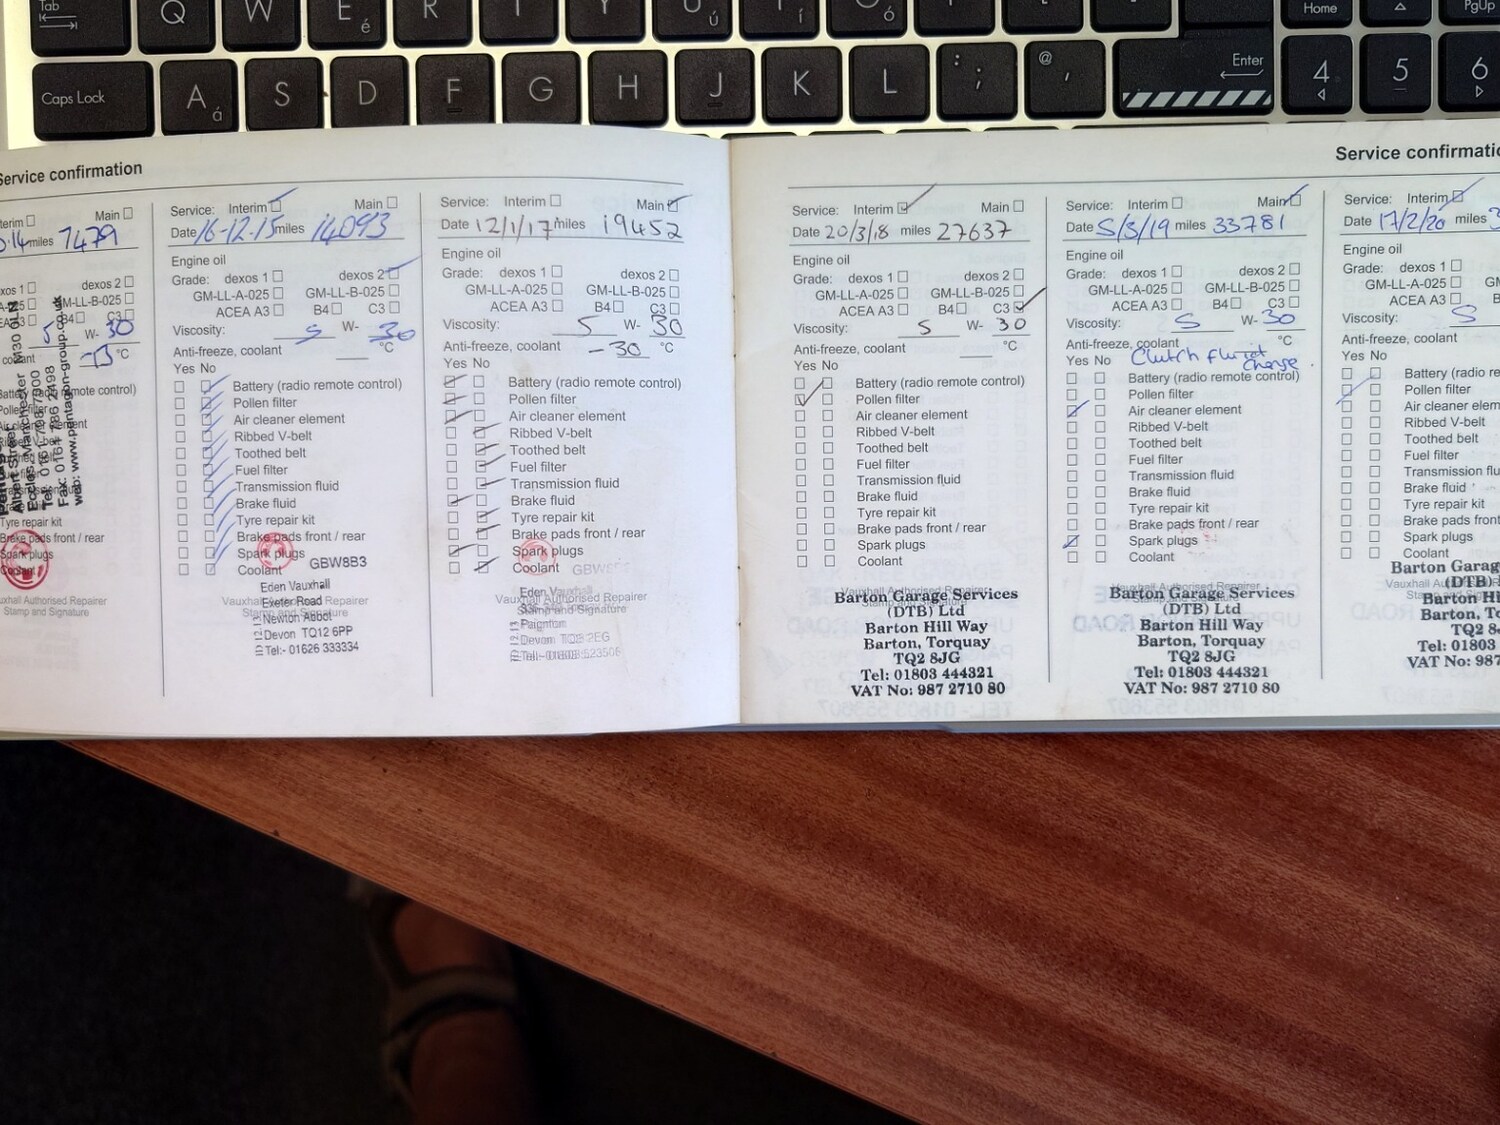 Tab
Q W E é R T Y U ú I í O ó P
Home
PgUp
Caps Lock A á S D F G H J K L : ; @ , Enter 4 5 6
Service confirmation
Main
miles 7479
dexos 2
GM-LL-B-025
B4 C3
5 W- 30
°C
Tyre repair kit
Brake pads front / rear
Spark plugs
Coolant
Vauxhall Authorised Repairer
Stamp and Signature
Albert Street
Eccles, Manchester M30
web: www.pentagon-group.co.uk
Service: Interim
Date 16-12-15 miles 14093
Grade: dexos 1 dexos 2
GM-LL-A-025 GM-LL-B-025
ACEA A3 B4 C3
Viscosity: 5 W- 30
Anti-freeze, coolant °C
Yes No
Battery (radio remote control)
Pollen filter
Air cleaner element
Ribbed V-belt
Toothed belt
Fuel filter
Transmission fluid
Brake fluid
Tyre repair kit
Brake pads front / rear
Spark plugs
Coolant
GBW8B3
Eden Vauxhall
Exeter Road
Newton Abbot
Devon TQ12 6PP
Tel:- 01626 333334
Service: Interim Main
Date 12/1/17 miles 19452
Engine oil
Grade: dexos 1 dexos 2
GM-LL-A-025 GM-LL-B-025
ACEA A3 B4 C3
Viscosity: 5 W- 30
Anti-freeze, coolant -30 °C
Yes No
Battery (radio remote control)
Pollen filter
Air cleaner element
Ribbed V-belt
Toothed belt
Fuel filter
Transmission fluid
Brake fluid
Tyre repair kit
Brake pads front / rear
Spark plugs
Coolant
Eden Vauxhall
Vauxhall Authorised Repairer
Stamp and Signature
Paignton
Devon
Service confirmatio
Service: Interim Main
Date 20/3/18 miles 27637
Engine oil
Grade: dexos 1 dexos 2
GM-LL-A-025 GM-LL-B-025
ACEA A3 B4 C3
Viscosity: 5 W- 30
Anti-freeze, coolant °C
Yes No
Battery (radio remote control)
Pollen filter
Air cleaner element
Ribbed V-belt
Toothed belt
Fuel filter
Transmission fluid
Brake fluid
Tyre repair kit
Brake pads front / rear
Spark plugs
Coolant
Barton Garage Services
(DTB) Ltd
Barton Hill Way
Barton, Torquay
TQ2 8JG
Tel: 01803 444321
VAT No: 987 2710 80
Service: Interim Main
Date 5/3/19 miles 33781
Engine oil
Grade: dexos 1 dexos 2
GM-LL-A-025 GM-LL-B-025
ACEA A3 B4 C3
Viscosity: 5 W- 30
Anti-freeze, coolant °C
Yes No Clutch fluid change.
Battery (radio remote control)
Pollen filter
Air cleaner element
Ribbed V-belt
Toothed belt
Fuel filter
Transmission fluid
Brake fluid
Tyre repair kit
Brake pads front / rear
Spark plugs
Coolant
Vauxhall Authorised Repairer
Barton Garage Services
(DTB) Ltd
Barton Hill Way
Barton, Torquay
TQ2 8JG
Tel: 01803 444321
VAT No: 987 2710 80
Service: Interim
Date 17/2/20 miles 3
Engine oil
Grade: dexos 1
GM-LL-A-025 GM-
ACEA A3 B4
Viscosity: 5
Anti-freeze, coolant
Yes No
Battery (radio re
Pollen filter
Air cleaner elem
Ribbed V-belt
Toothed belt
Fuel filter
Transmission flui
Brake fluid
Tyre repair kit
Brake pads front
Spark plugs
Coolant
Barton Garag
(DTB)
Barton Hi
Barton, To
TQ2 8
Tel: 01803
VAT No: 987